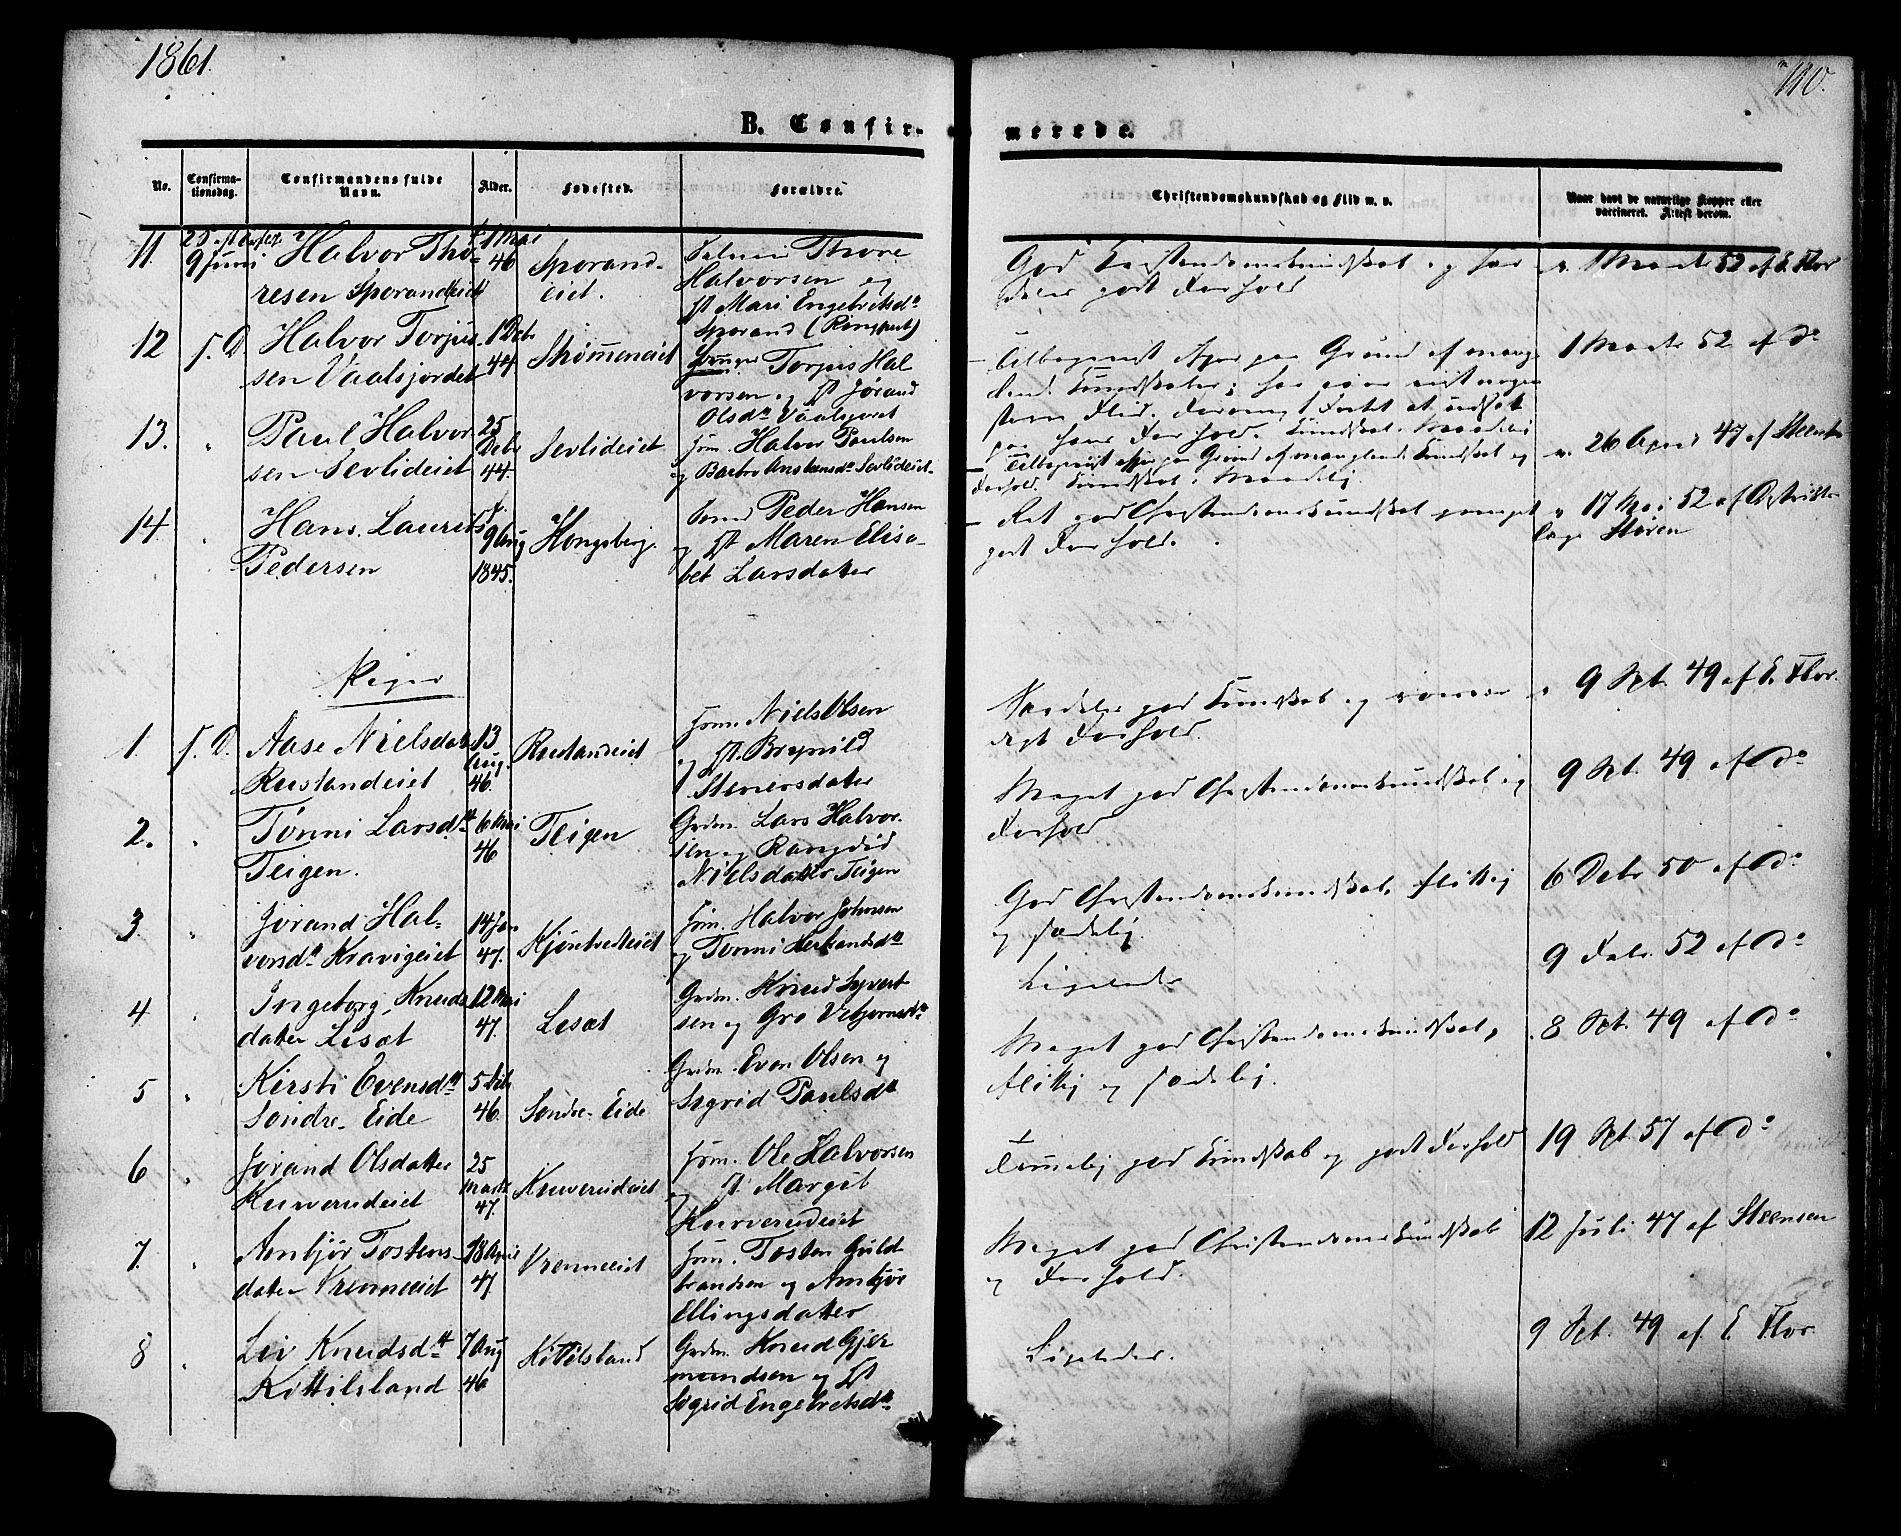 1861.
110.
B. Confir-
merede.
No.
Confirma-
tionsdag.
Confirmandens fulde
Navn.
Alder.
Fødested.
Forældre.
Christendomskundskab og Flid m. v.
Naar havt de naturlige Kopper eller
vaccineret. Attest derom.
11.
9 Juni
Halvor Tho-
resen Sporandeiet
1 Mai
46
Sporand-
eiet.
Thore
Halvorsen og
Mari Engebretsdr
Sporand
God Christendomskundskab og
godt Forhold
1 Marts 52 af E. Flor
12
s. D.
Halvor Torjus-
sen Vaalsjordet
1 Debr
44.
Strømmeneiet
Torjus Hal
vorsen og Jørand
Olsdr Vaalsjoret
Tilbageviist paa Grund af mang-
lende Kundskaber;
1 Marts 52 af Do
13.
"
Paul Halvor
sen Sevlideiet
25
Debr
44.
Sevlideiet
Jvm. Halvor Paulsen
og Barbro Anstensdr Sevlideiet
Tilbageviist paa Grund af manglende Kundskab og
Forhold. Kundskab: Maadelig
26 April 47 af Steensen
14.
"
Hans Laurits
Pedersen
9 Aug
1845.
Kongsberg.
Peder Hansen
og Maren Elisa-
bet Larsdater
Ret god Christendomskundskab
godt Forhold.
17 Mai 52 af Distrikts
læge Støren
Piger
1.
s. D.
Aase Nielsdater
Rustandeiet
13
Aug.
46.
Rustandeiet
Jvm. Niels Olsen
og Brynild
Stenersdater
Særdeles god Kundskab og
digt Forhold.
9 Spt. 49 af E. Flor.
2.
"
Tønni Larsdt
Teigen.
6 Mai
46
Teigen
Grdm. Lars Halvor-
sen og Rangdid
Nielsdater Teigen
Meget god Christendomskundskab og
Forhold
9 Spt. 49 af Do
3.
"
Jørand Hal-
vorsdr Kravigeiet
14 Jan
47.
Kjøntvedteiet
Jvm. Halvor Johnsen
og Tønni Herbrandsdr
God Christendomskundskab, flittig
og sædelig.
6 Debr 50 af Do
4
"
Ingeborg Knuds
dater Lisæt
12 Mai
47.
Lisæt
Grdm. Knud Syvert
sen og Gro Vebjørnsdr
Ligeledes
9 Febr. 52 af Do
5
"
Kirsti Evensdtr
Søndre Eide
46.
Søndre Eide
Grdm. Even Olsen og
Sigrid Paulsdtr
Meget god Christendomskundskab,
flittig og sædelig.
8 Spt. 49 af Do
6
"
Jørand Olsdatter
Kurverudeiet
25
Marts
47.
Kurverudeiet
Jvm. Ole Halvorsen
og Margit
Kurverudeiet
Temmelig god Kundskab og godt Forhold
19 Spt. 57 af Do
7.
"
Ambjør Tostens-
dater Vrenneeiet
18 April
47.
Vrenneeiet
Jvm. Tosten Guld
brandsen og Ambjør
Ellingsdatter
Meget god Christendomskundskab
og Forhold.
12 Juli 47 af Steensen
8
"
Liv Knudsdtt
Kittilsland
7 Aug
46
Kittilsland
Grdm. Knud Gjer
mundsen og
Sigrid Engebretsdr
Ligeledes.
9 Spt. 49 af E. Flor.